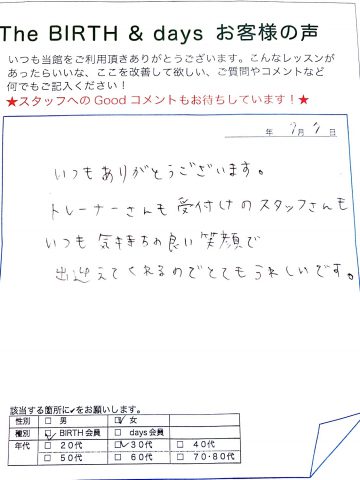 The BIRTH & days お客様の声
いつも当館をご利用頂きありがとうございます。こんなレッスンが
あったらいいな、ここを改善して欲しい、ご質問やコメントなど
何でもご記入ください！
★スタッフへのGoodコメントもお待ちしています！★
年 9月 9日
いつもありがとうございます。
トレーナーさんも受付けのスタッフさんも
いつも気持ちの良い笑顔で
出迎えてくれるのでとてもうれしいです。
該当する箇所に✔をお願いします。
性別 □ 男 ☑ 女
種別 ☑ BIRTH会員 □ days会員
年代 □ 20代 ☑ 30代 □ 40代
□ 50代 □ 60代 □ 70・80代